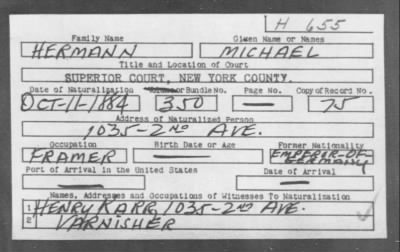 H 655
Family Name Given Name or Names
HERMANN MICHAEL
Title and Location of Court
SUPERIOR COURT, NEW YORK COUNTY.
Date of Naturalization Volume or Bundle No. Page No. Copy of Record No.
OCT-11-1884 350 — 75
Address of Naturalized Person
1035-2ND AVE.
Occupation Birth Date or Age Former Nationality
FRAMER — EMPEROR-OF GERMANY
Port of Arrival in the United States Date of Arrival
— —
Names, Addresses and Occupations of Witnesses To Naturalization
1 HENRY KARR, 1035-2ND AVE.
2 VARNISHER